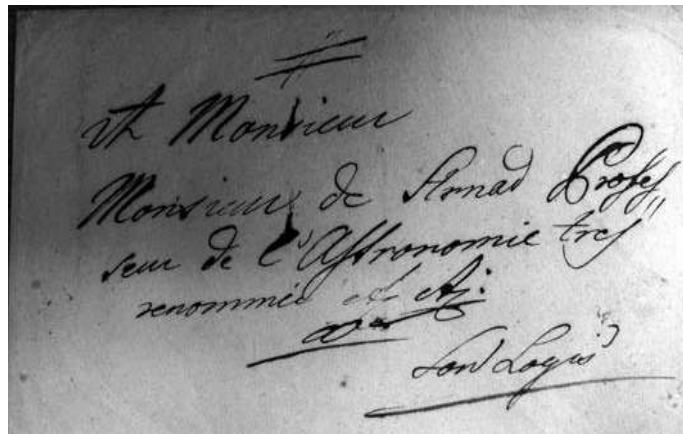 A Monsieur
Monsieur de Strnad Profes
seur de l'Astronomie tres
renommée
Son Logis